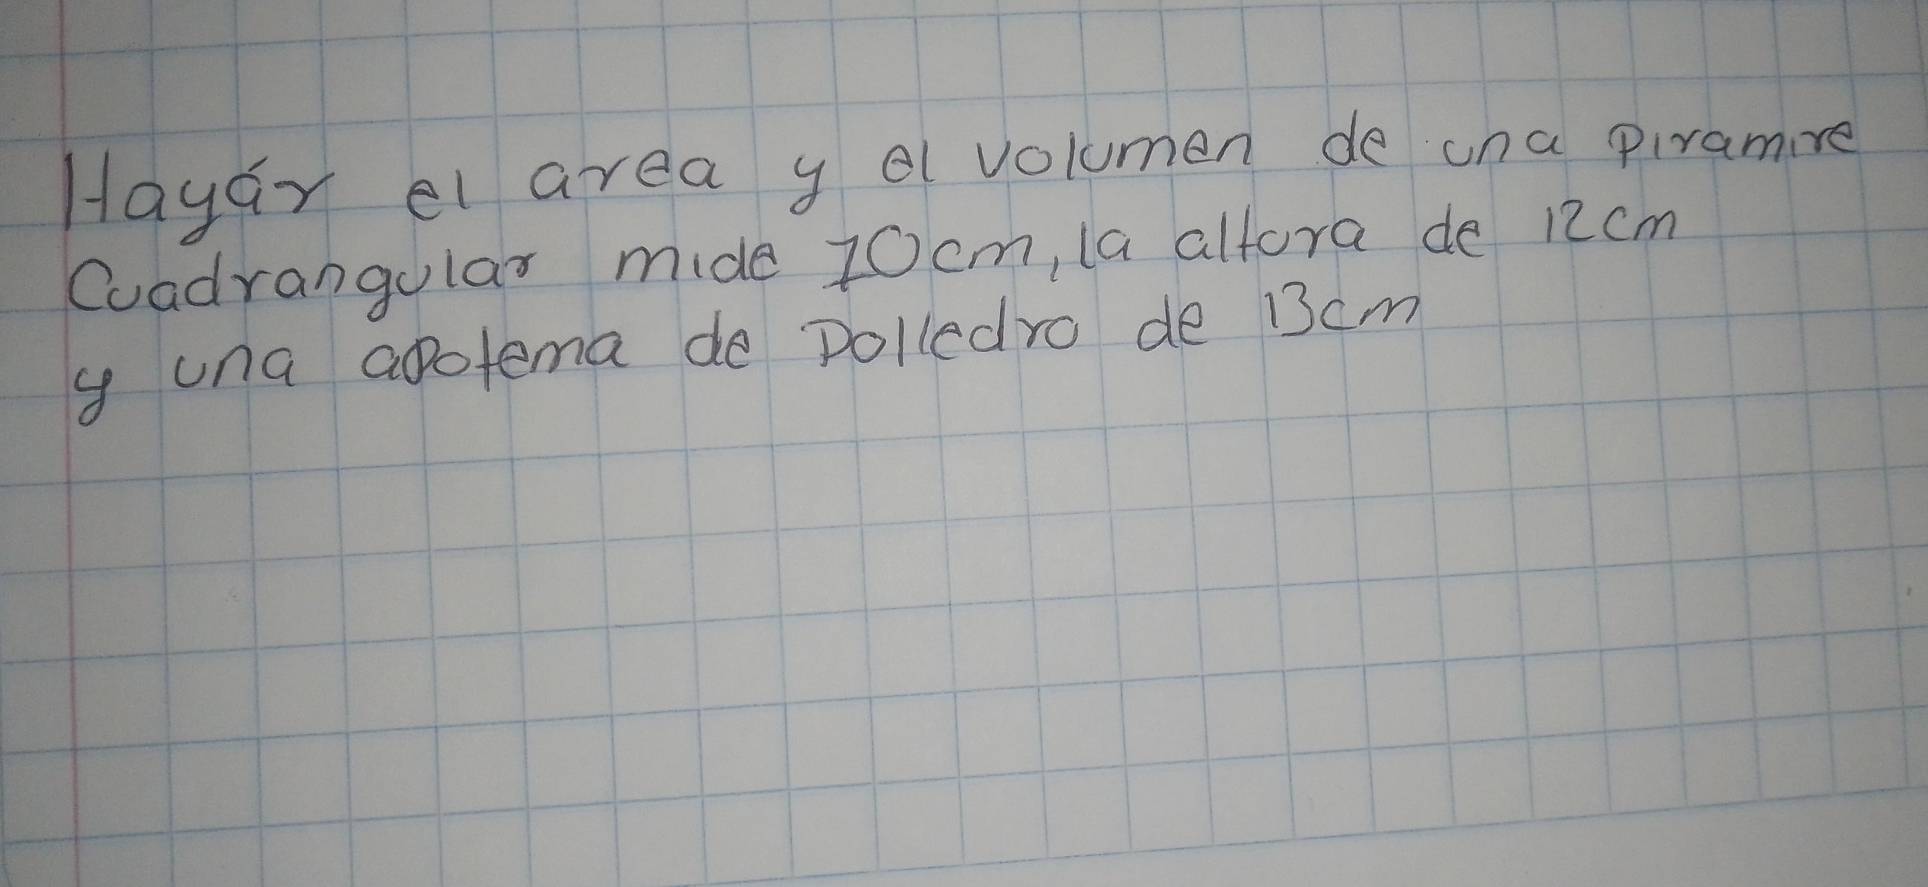 Hayár el area y el volumen de una piramire
Cuadrangular mide 10cm, la altura de 12cm
y una apotema de polledro de 13cm